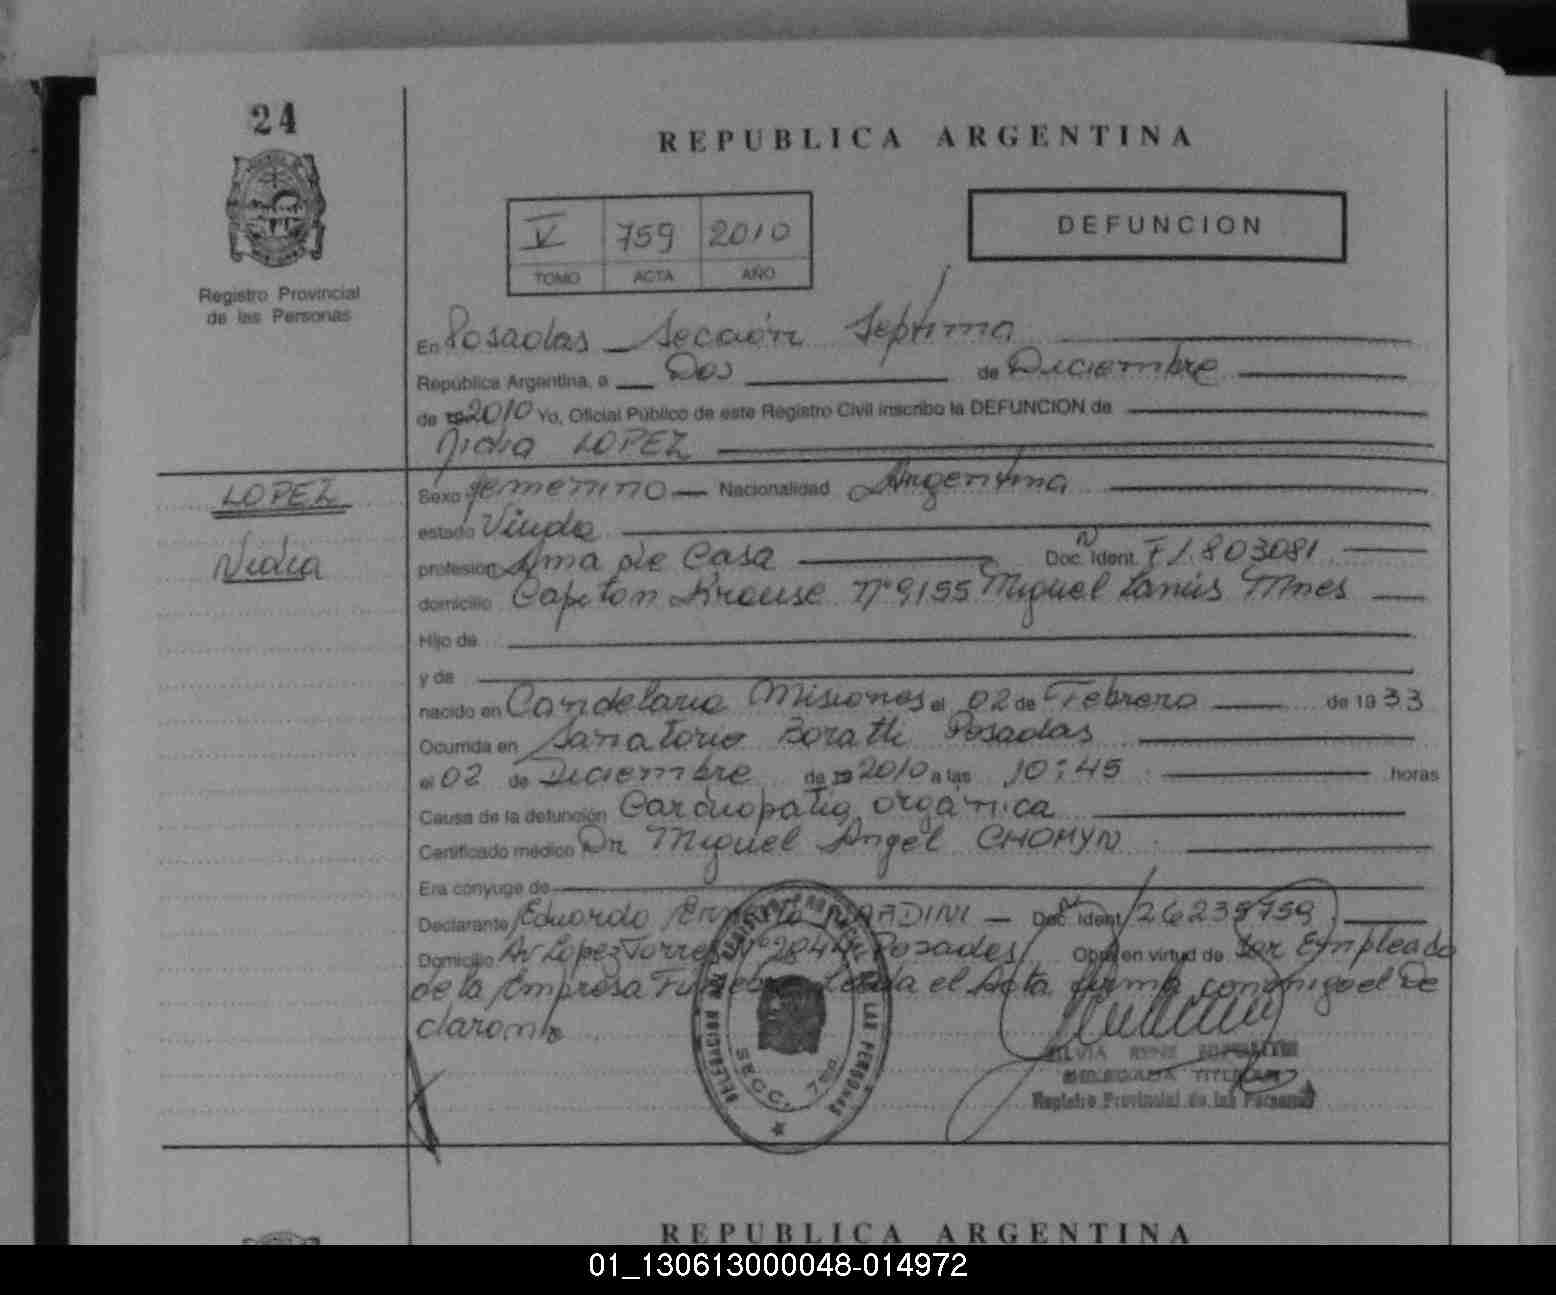 24
REPUBLICA ARGENTINA
V 759 2010
TOMO ACTA AÑO
DEFUNCION
Registro Provincial
de las Personas
En Posadas Sección Septima
República Argentina, a Dos de Diciembre
de 19 2010 Yo, Oficial Público de este Registro Civil inscribo la DEFUNCION de
Nidia LOPEZ
LOPEZ
Nidia
Sexo femenino Nacionalidad Argentina
estado Viuda
profesión Ama de Casa Doc. Ident. F 1.803081
domicilio Capitan Krause Nº 9155 Miguel Lanús Mnes
Hijo de
y de
nacido en Candelaria Misiones el 02 de Febrero de 19 33
Ocurrida en Sanatorio Boratti Posadas
el 02 de Diciembre de 19 2010 a las 10:45 horas
Causa de la defunción Cardiopatia orgánica
Certificado médico Dr Miguel Angel CHOMYN
Era cónyuge de
Declarante Eduardo Ernesto NARDINI Doc. Ident. 26235759
Domicilio Av Lopez Torres Nº 2844 Posadas Obra en virtud de Ser Empleado
de la Empresa Leida el Acta firma conmigo el De
clarante
DELEGACION DEL REGISTRO PROVINCIAL DE LAS PERSONAS
SECC. 7ma
SILVIA RENE
DELEGADA TITULAR
Registro Provincial de las Personas
REPUBLICA ARGENTINA
01_130613000048-014972